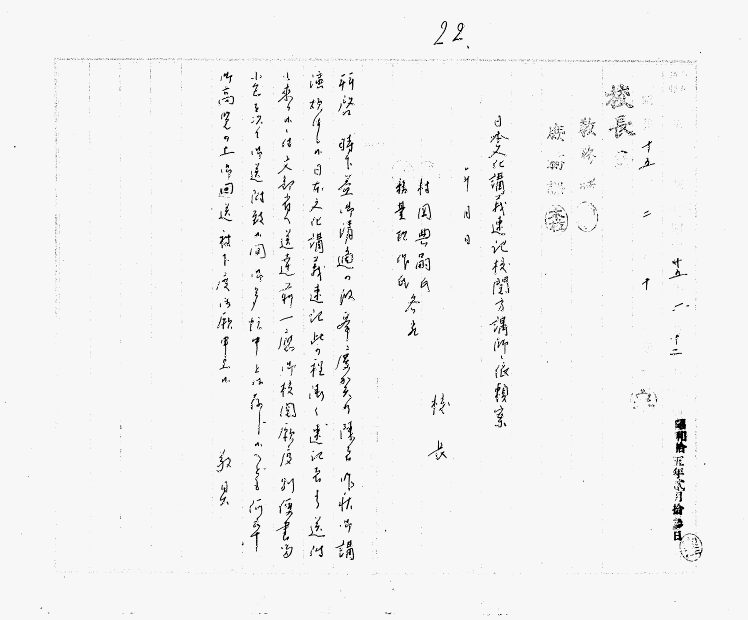 22.
昭和拾五年弐月拾
十五 二 十
校長
教務課
庶務課
日本文化講義速記校閲方講師ヘ依頼案
年 月 日
校長
村岡典嗣氏
務台理作氏 各通
拝啓 時下益御清適の段奉慶賀候陳者昨秋御講
演相煩候日本文化講義速記此の程漸く速記者より送附
し来り候に付文部省へ送達前一応御校閲願度別便書留
小包を以て御送附致候間御多忙中とは存じ候へども何卒
御高覧の上御回送被下度御願申上候
敬具